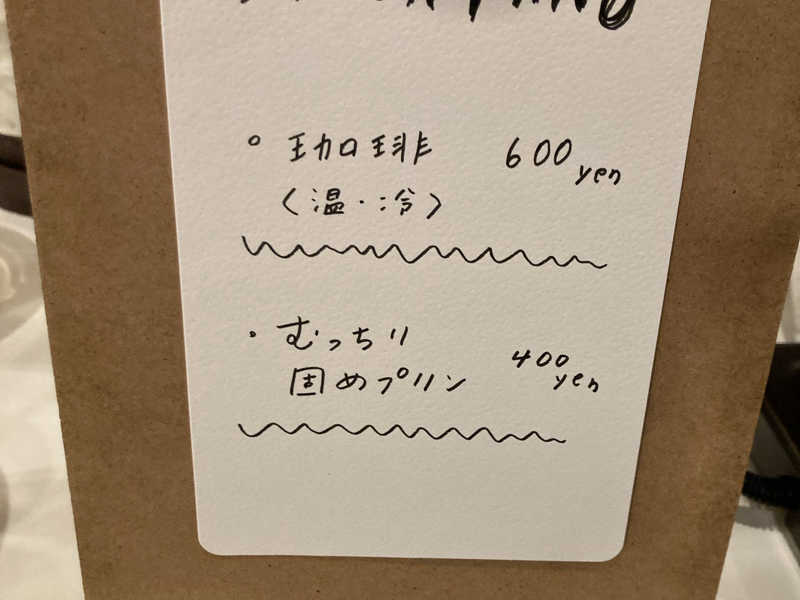 ° 珈琲 600 yen
〈温・冷〉
・むっちり
固めプリン 400 yen